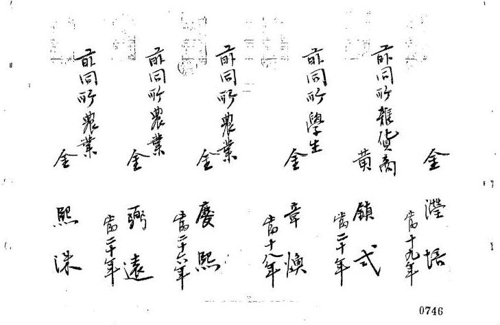 金 瀅培
當十九年
前同所雜貨商
黃 鎮式
當二十年
前同所學生
金 章煥
當十八年
前同所農業
金 慶熙
當二十六年
前同所農業
金 弼遠
當二十年
前同所農業
金 熙洙
0746